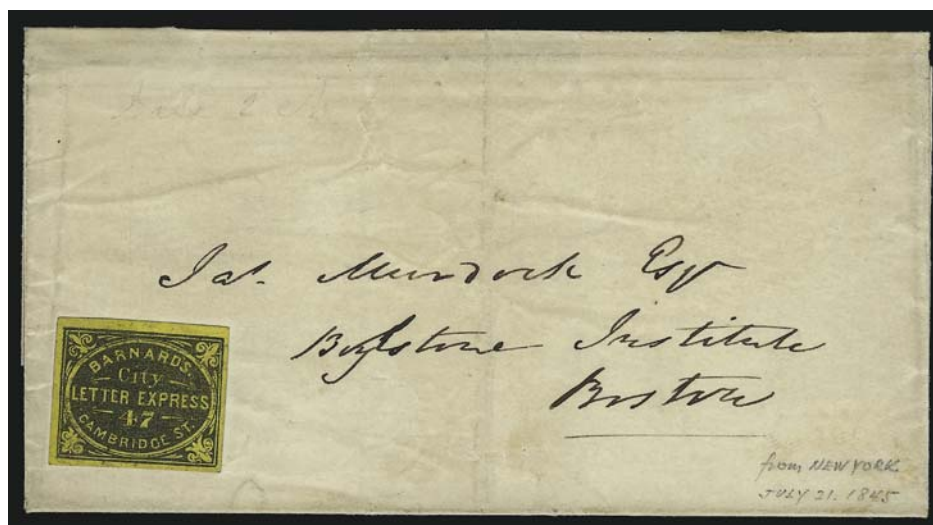 Jas. Murdock Esqr
Boylstone Institute
Boston
BARNARD'S
City
LETTER EXPRESS
47
CAMBRIDGE ST.
from NEW YORK
JULY 21. 1845